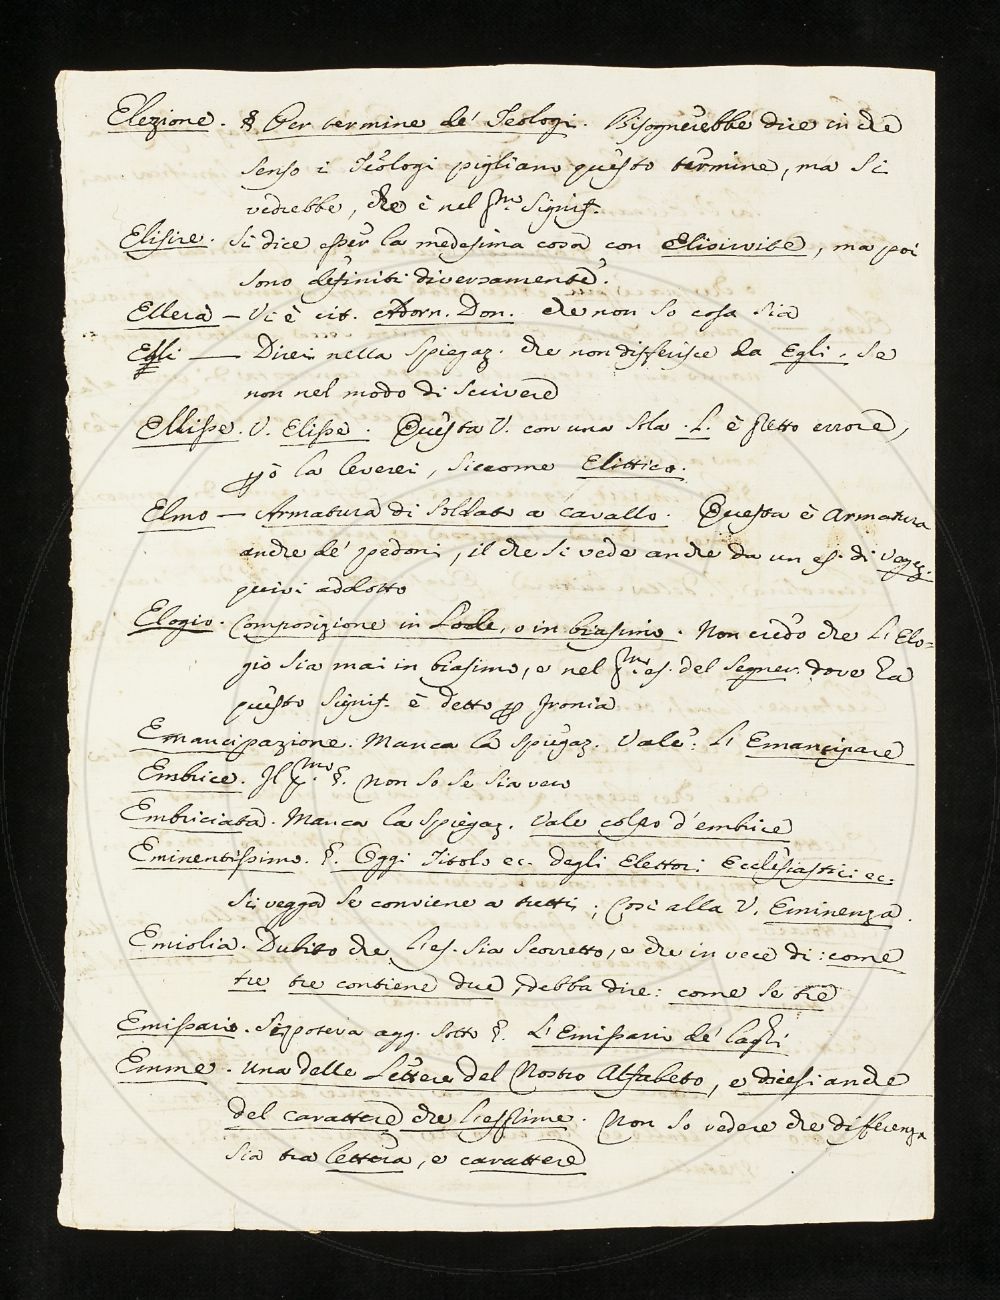 Elezione. § Per termine de' Teologi. Bisognerebbe dire in che
senso i Teologi pigliano questo termine, ma si
vedrebbe, che è nel pmo. signif.
Elisire. Si dice esser la medesima cosa con Elisirvite, ma poi
sono definiti diversamente.
Ellera — Vi è cit. Adorn. Don. che non so cosa sia
Elli — Direi nella spiegaz. che non differisce da Egli, se
non nel modo di scrivere
Ellisse. V. Elisse. Questa V. con una sola L. è pretto errore,
però la leverei, siccome Elittico.
Elmo — Armatura di soldato a cavallo. Questa è armatura
anche de' pedoni, il che si vede anche da un es. di Vegez.
quivi addotto
Elogio. Composizione in lode, o in biasimo. Non credo che l'Elo-
gio sia mai in biasimo, e nel pmo. es. del Segner. dove ha
questo signif. è detto per Ironia
Emancipazione. Manca la spiegaz. Vale: L'Emancipare
Embrice. Il pmo. §. non so se sia vero
Embriciata. Manca la spiegaz. Vale colpo d'embrice
Eminentissimo. §. Oggi Titolo ec. degli Elettori Ecclesiastici ec.
Si vegga se conviene a tutti; Così alla V. Eminenza.
Emiolia. Dubito che l'es. sia scorretto, e che in vece di: come
tre tre contiene due, debba dire: come se tre
Emissario. Si poteva agg. sotto §. L'Emissario de' laghi
Emme. Una delle Lettere del Nostro Alfabeto, e dicesi anche
del carattere che l'esprime. Non so vedere che differenza
sia tra lettera, e carattere